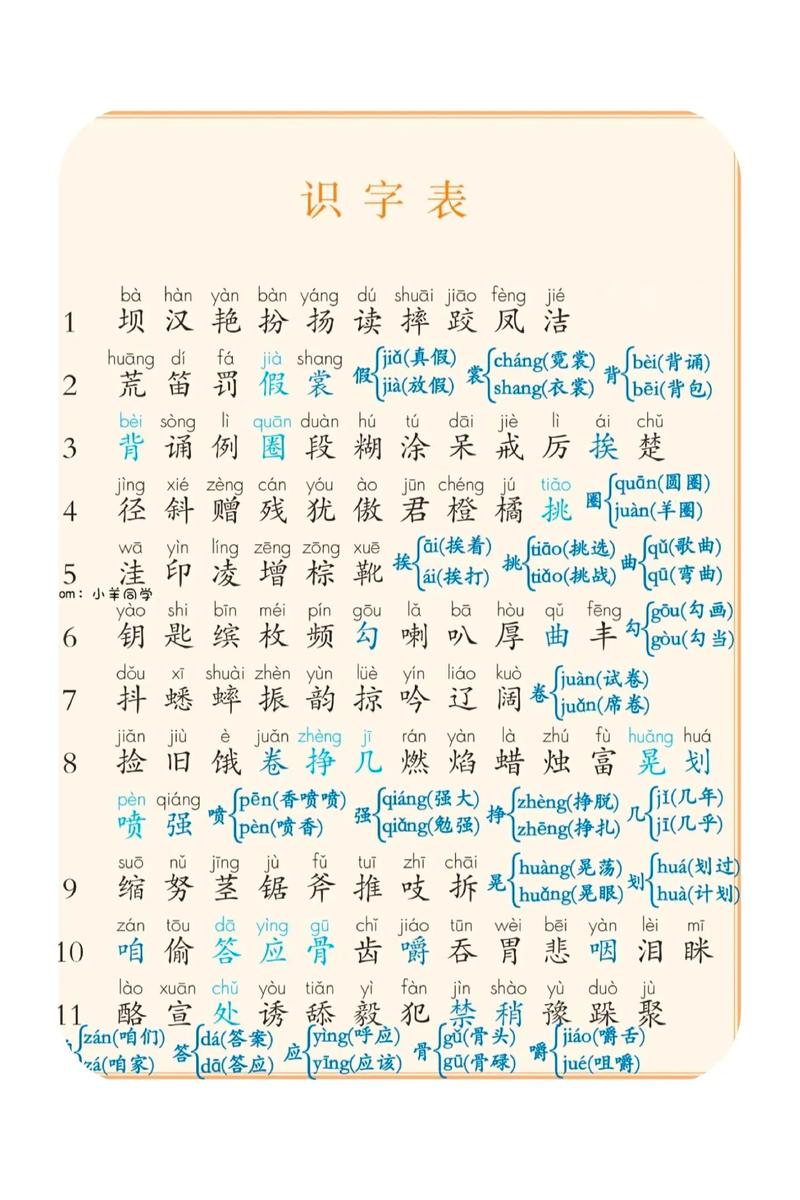 识字表
bà hàn yàn bàn yáng dú shuāi jiāo fèng jié
1 坝 汉 艳 扮 扬 读 摔 跤 凤 洁
huāng dí fá jià shang
2 荒 笛 罚 假 裳 假{jiǎ(真假) jià(放假) 裳{cháng(霓裳) shang(衣裳) 背{bèi(背诵) bēi(背包)
bèi sòng lì quān duàn hú tú dāi jiè lì ái chǔ
3 背 诵 例 圈 段 糊 涂 呆 戒 厉 挨 楚
jìng xié zèng cán yóu ào jūn chéng jú tiǎo
4 径 斜 赠 残 犹 傲 君 橙 橘 挑 圈{quān(圆圈) juàn(羊圈)
wā yìn líng zēng zōng xuē
5 洼 印 凌 增 棕 靴 挨{āi(挨着) ái(挨打) 挑{tiāo(挑选) tiǎo(挑战) 曲{qǔ(歌曲) qū(弯曲)
om：小羊同学
yào shi bīn méi pín gōu lǎ bā hòu qǔ fēng
6 钥 匙 缤 枚 频 勾 喇 叭 厚 曲 丰 勾{gōu(勾画) gòu(勾当)
dǒu xī shuài zhèn yùn lüè yín liáo kuò
7 抖 蟋 蟀 振 韵 掠 吟 辽 阔 卷{juàn(试卷) juǎn(席卷)
jiǎn jiù è juǎn zhèng jī rán yàn là zhú fù huǎng huá
8 捡 旧 饿 卷 挣 几 燃 焰 蜡 烛 富 晃 划
pèn qiáng
喷 强 喷{pēn(香喷喷) pèn(喷香) 强{qiáng(强大) qiǎng(勉强) 挣{zhèng(挣脱) zhēng(挣扎) 几{jǐ(几年) jī(几乎)
suō nǔ jīng jù fǔ tuī zhī chāi
9 缩 努 茎 锯 斧 推 吱 拆 晃{huàng(晃荡) huǎng(晃眼) 划{huá(划过) huà(计划)
zán tōu dā yìng gǔ chǐ jiáo tūn wèi bēi yàn lèi mī
10 咱 偷 答 应 骨 齿 嚼 吞 胃 悲 咽 泪 眯
lào xuān chǔ yòu tiǎn yì fàn jìn shào yù duò jù
11 酪 宣 处 诱 舔 毅 犯 禁 稍 豫 跺 聚
{zán(咱们) zá(咱家) 答{dá(答案) dā(答应) 应{yìng(呼应) yīng(应该) 骨{gǔ(骨头) gū(骨碌) 嚼{jiáo(嚼舌) jué(咀嚼)